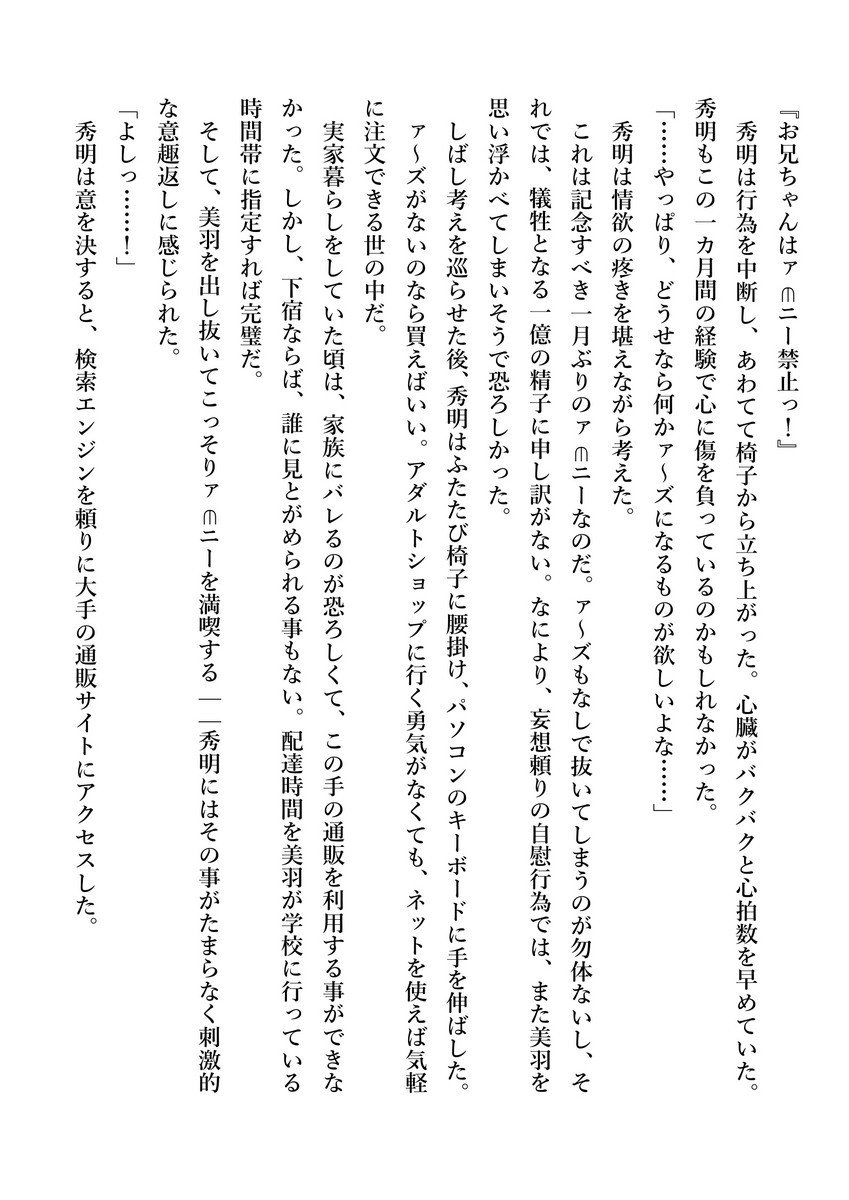 『お兄ちゃんはァ⋒ニー禁止っ！』
秀明は行為を中断し、あわてて椅子から立ち上がった。心臓がバクバクと心拍数を早めていた。
秀明もこの一カ月間の経験で心に傷を負っているのかもしれなかった。
「……やっぱり、どうせなら何かァ～ズになるものが欲しいよな……」
秀明は情欲の疼きを堪えながら考えた。
これは記念すべき一月ぶりのァ⋒ニーなのだ。ァ～ズもなしで抜いてしまうのが勿体ないし、そ
れでは、犠牲となる一億の精子に申し訳がない。なにより、妄想頼りの自慰行為では、また美羽を
思い浮かべてしまいそうで恐ろしかった。
しばし考えを巡らせた後、秀明はふたたび椅子に腰掛け、パソコンのキーボードに手を伸ばした。
ァ～ズがないのなら買えばいい。アダルトショップに行く勇気がなくても、ネットを使えば気軽
に注文できる世の中だ。
実家暮らしをしていた頃は、家族にバレるのが恐ろしくて、この手の通販を利用する事ができな
かった。しかし、下宿ならば、誰に見とがめられる事もない。配達時間を美羽が学校に行っている
時間帯に指定すれば完璧だ。
そして、美羽を出し抜いてこっそりァ⋒ニーを満喫する――秀明にはその事がたまらなく刺激的
な意趣返しに感じられた。
「よしっ……！」
秀明は意を決すると、検索エンジンを頼りに大手の通販サイトにアクセスした。